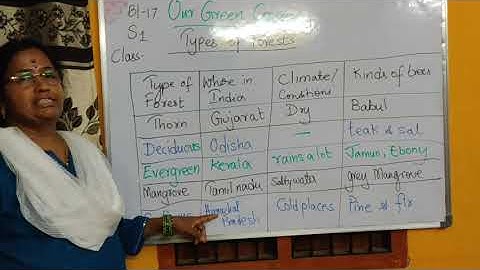 Bl-17 Our Green
S1 Types of Forests
Class-
Type of Forest Where in India Climate/ Conditions Kinds of trees
Thorn Gujarat Dry Babul
Deciduous Odisha — teak & sal
Evergreen Kerala rains a lot Jamun, Ebony
Mangrove Tamil nadu Salty water grey Mangrove
Himachal Pradesh Cold places Pine & fir